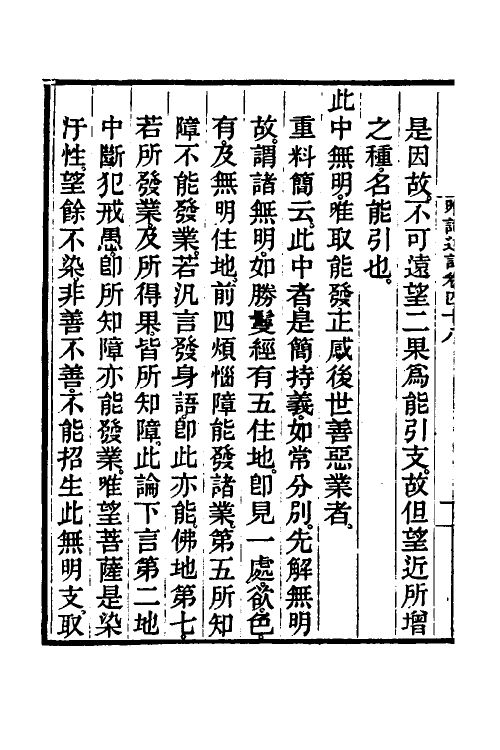 是因故。不可遠望二果爲能引支。故但望近所增
之種。名能引也。
此中無明。唯取能發正感後世善惡業者。
重料簡云。此中者。是簡持義。如常分別。先解無明
故。謂諸無明。如勝鬘經有五住地。卽見一處。欲。色。
有。及無明住地。前四煩惱障能發諸業。第五所知
障不能發業。若汎言發身語。卽此亦能。佛地第七。
若所發業。及所得果。皆所知障。此論下言第二地
中斷犯戒愚。卽所知障亦能發業。唯望菩薩是染
汙性。望餘不染。非善不善。不能招生此無明支。取